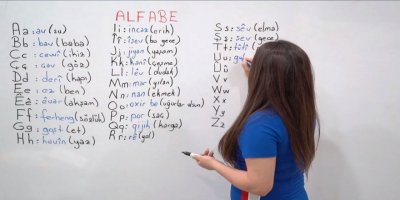 ALFABE
Aa: av (su)
Bb: bav (baba)
Cc: cewî (ikiz)
Çç: çav (göz)
Dd: derî (kapı)
Ee: ez (ben)
Êê: êvar (akşam)
Ff: ferheng (sözlük)
Gg: goşt (et)
Hh: havîn (yaz)
Ii: incaz (erik)
Îî: îşev (bu gece)
Jj: jiyan (yaşam)
Kk: kanî (çeşme)
Ll: lêv (dudak)
Mm: mar (yılan)
Nn: nan (ekmek)
Oo: oxir be (uğurlar olsun)
Pp: por (saç)
Qq: qijik (karga)
Rr: rê (yol)
Ss: sêv (elma)
Şş: şev (gece)
Tt: tilî
Uu:
Ûû
Vv
Ww
Xx
Yy
Zz